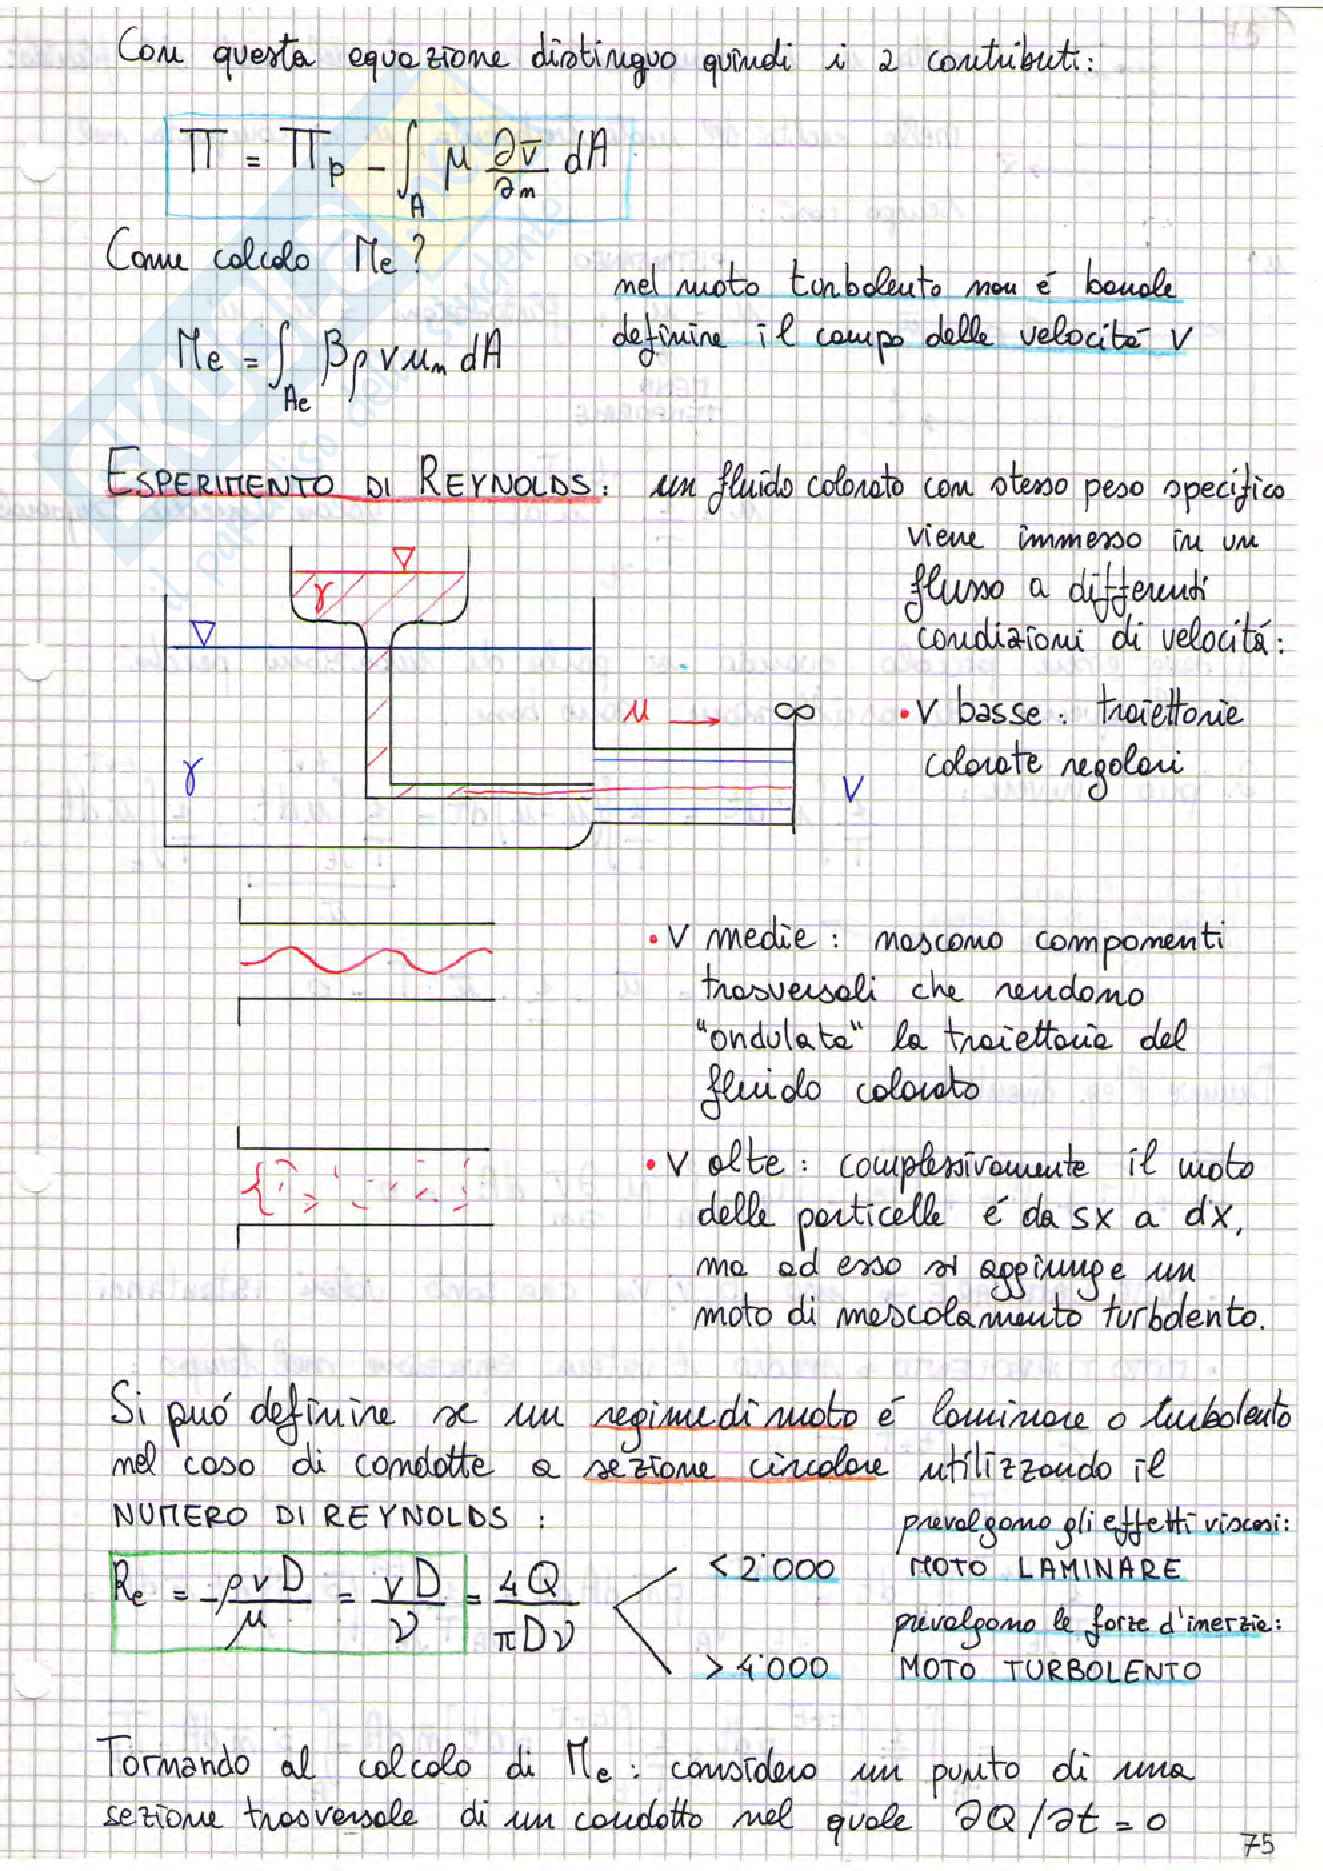 Con questa equazione distinguo quindi i 2 contributi:
Π = Πp - ∫A μ ∂v̄/∂n dA
Come calcolo Me?
nel moto turbolento non é banale
definire il campo delle velocitá v
Me = ∫Ae βρ v un dA
ESPERIMENTO DI REYNOLDS: un fluido colorato con stesso peso specifico
viene immesso in un
flusso a differenti
condizioni di velocitá:
γ
u →
• V basse: traiettorie
colorate regolari
γ
V
• V medie: nascono componenti
trasversali che rendono
"ondulata" la traiettoria del
fluido colorato
• V alte: complessivamente il moto
delle particelle é da sx a dx,
ma ad esso si aggiunge un
moto di mescolamento turbolento.
Si puó definire se un regime di moto é laminare o turbolento
nel caso di condotte a sezione circolare utilizzando il
NUMERO DI REYNOLDS:
prevalgono gli effetti viscosi:
Re = ρvD/μ = vD/ν = 4Q/πDν
< 2'000 MOTO LAMINARE
prevalgono le forze d'inerzia:
> 4'000 MOTO TURBOLENTO
Tornando al calcolo di Me: considero un punto di una
sezione trasversale di un condotto nel quale ∂Q/∂t = 0
75